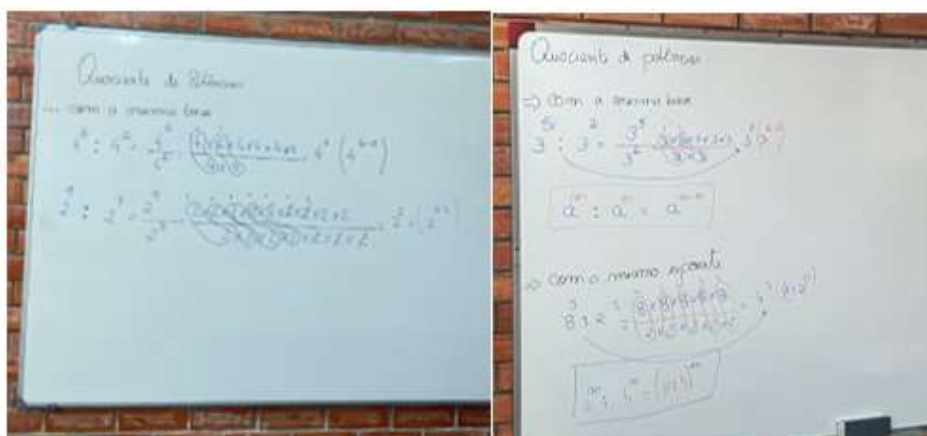 Quociente de Potências
com a mesma base
4⁶ : 4² = 4⁶/4² = 4×4×4×4×4×4/4×4 = 4⁴ (4⁶⁻²)
2⁹ : 2⁷ = 2⁹/2⁷ = 2×2×2×2×2×2×2×2×2/2×2×2×2×2×2×2 = 2² = (2⁹⁻⁷)
Quociente de potências
⇒ com a mesma base
3⁵ : 3² = 3⁵/3² = 3×3×3×3×3/3×3 = 3³ (3⁵⁻²)
aᵐ : aⁿ = aᵐ⁻ⁿ
⇒ com o mesmo expoente
8⁵ : 2⁵ = 8×8×8×8×8/2×2×2×2×2 = 4⁵ (8:2)⁵